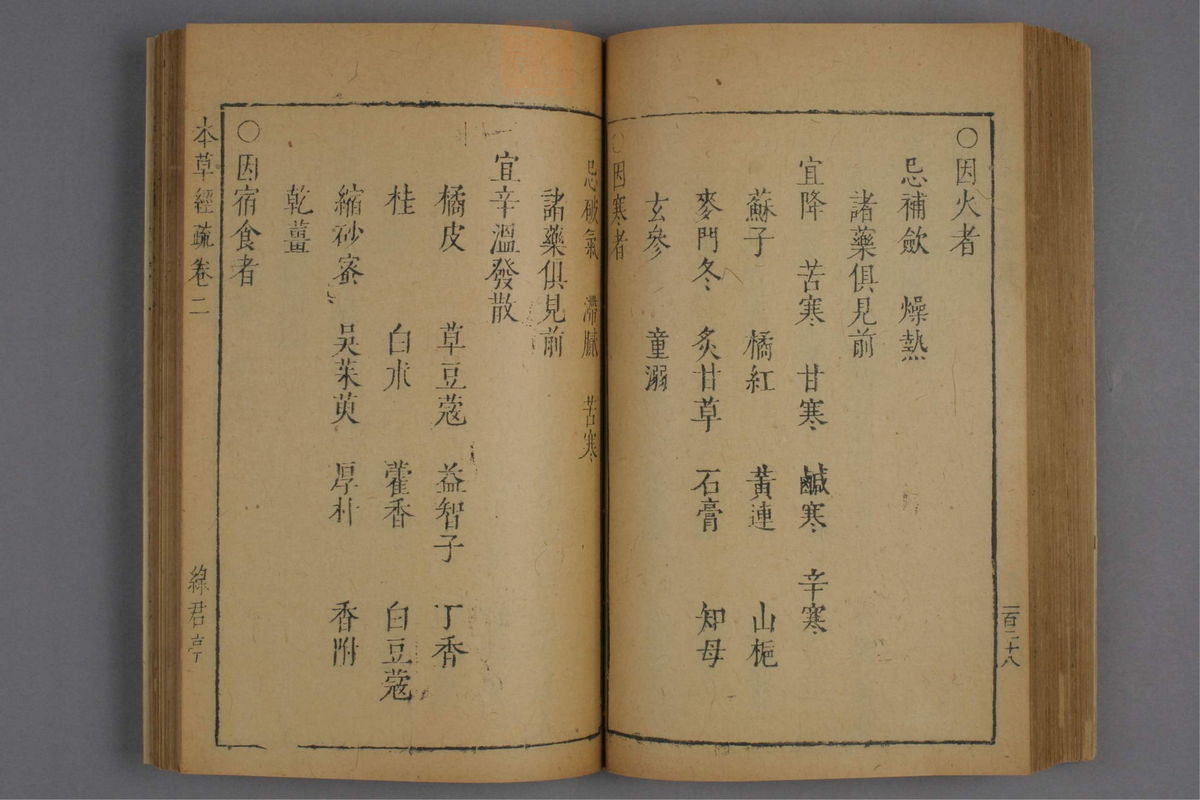 〇因火者
忌補斂 燥熱
諸藥俱見前
宜降 苦寒 甘寒 鹹寒 辛寒
蘇子 橘紅 黃連 山梔
麥門冬 炙甘草 石膏 知母
玄參 童溺
〇因寒者
忌破氣 滯膩 苦寒
諸藥俱見前
宜辛溫發散
橘皮 草豆蔻 益智子 丁香
桂 白朮 藿香 白豆蔻
縮砂蜜 吳茱萸 厚朴 香附
乾薑
〇因宿食者
本草經疏卷二
綠君亭
一百二十八